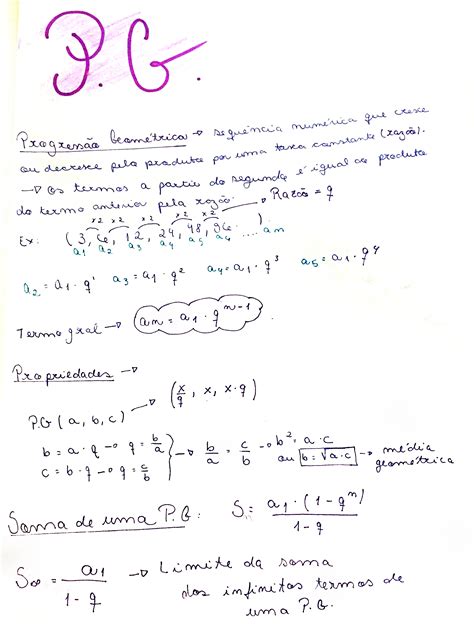 P.G.
Progressão Geométrica → sequência numérica que cresce
ou decresce pelo produto por uma taxa constante (razão).
→ Os termos a partir do segundo é igual ao produto
do termo anterior pela razão. → Razão = q
×2 ×2 ×2 ×2 ×2
Ex: (3, 6, 12, 24, 48, 96, ... )
a1 a2 a3 a4 a5 a6 .... an
a2 = a1 · q¹ a3 = a1 · q² a4 = a1 · q³ a5 = a1 · q⁴
Termo gral → an = a1 · q^(n-1)
Propriedades →
P.G (a, b, c) → (x/q, x, x·q)
b = a · q → q = b/a
c = b · q → q = c/b
→ b/a = c/b → b² = a · c
ou b = √a·c → média
geométrica
Soma de uma P.G: S = a1 · (1 - qⁿ) / 1 - q
S∞ = a1 / 1 - q → Limite da soma
dos infinitos termos de
uma P.G.